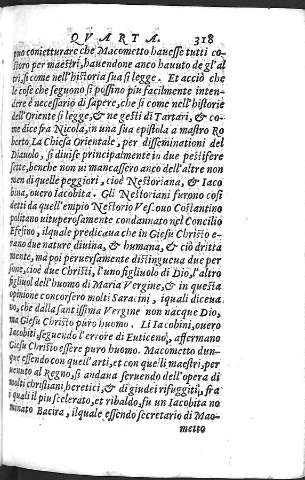 QVARTA. 318
può conietturare che Macometto hauesse tutti co-
storo per maestri, hauendone anco hauuto de gl'al
tri, si come nell'historia sua si legge. Et acciò che
le cose che seguono si possino piu facilmente inten-
dere è necessario di sapere, che si come nell'historie
dell'Oriente si legge, & ne gesti di Tartari, & co-
me dice fra Nicola, in una sua epistola a mastro Ro
berto, La Chiesa Orientale, per disseminationi del
Diauolo, si diuise principalmente in due pestifere
sette, benche non ui mancassero anco dell'altre non
men di quelle peggiori, cioè Nestoriana, & Iaco
bina, ouero Iacobita. Gli Nestoriani furono cosi
detti da quell'empio Nestorio Vescouo Costantino
politano uituperosamente condannato nel Concilio
Efesino, ilquale predicaua che in Giesu Christo e-
rano due nature diuina, & humana, & ciò dritta
mente, ma poi peruersamente distingueua due per
sone, cioè due Christi, l'uno figliuolo di Dio, l'altro
figliuol dell'huomo di Maria Vergine, & in questa
opinione concorsero molti Saracini, iquali diceua
no, che dalla santissima Vergine non nacque Dio,
ma Giesu Christo puro huomo. Li Iacobini, ouero
Iacobiti, seguendo l'errore di Euticeno, affermano
Giesu Christo essere puro huomo. Macometto dun-
que essendo con quell'arti, et con quelli maestri, per
uenuto al Regno, si andaua seruendo dell'opera di
molti christiani, heretici, & di giudei rifuggiti, fra
i quali il piu scelerato, et ribaldo, fu un Iacobita no
minato Bacira, ilquale essendo secretario di Mao-
metto